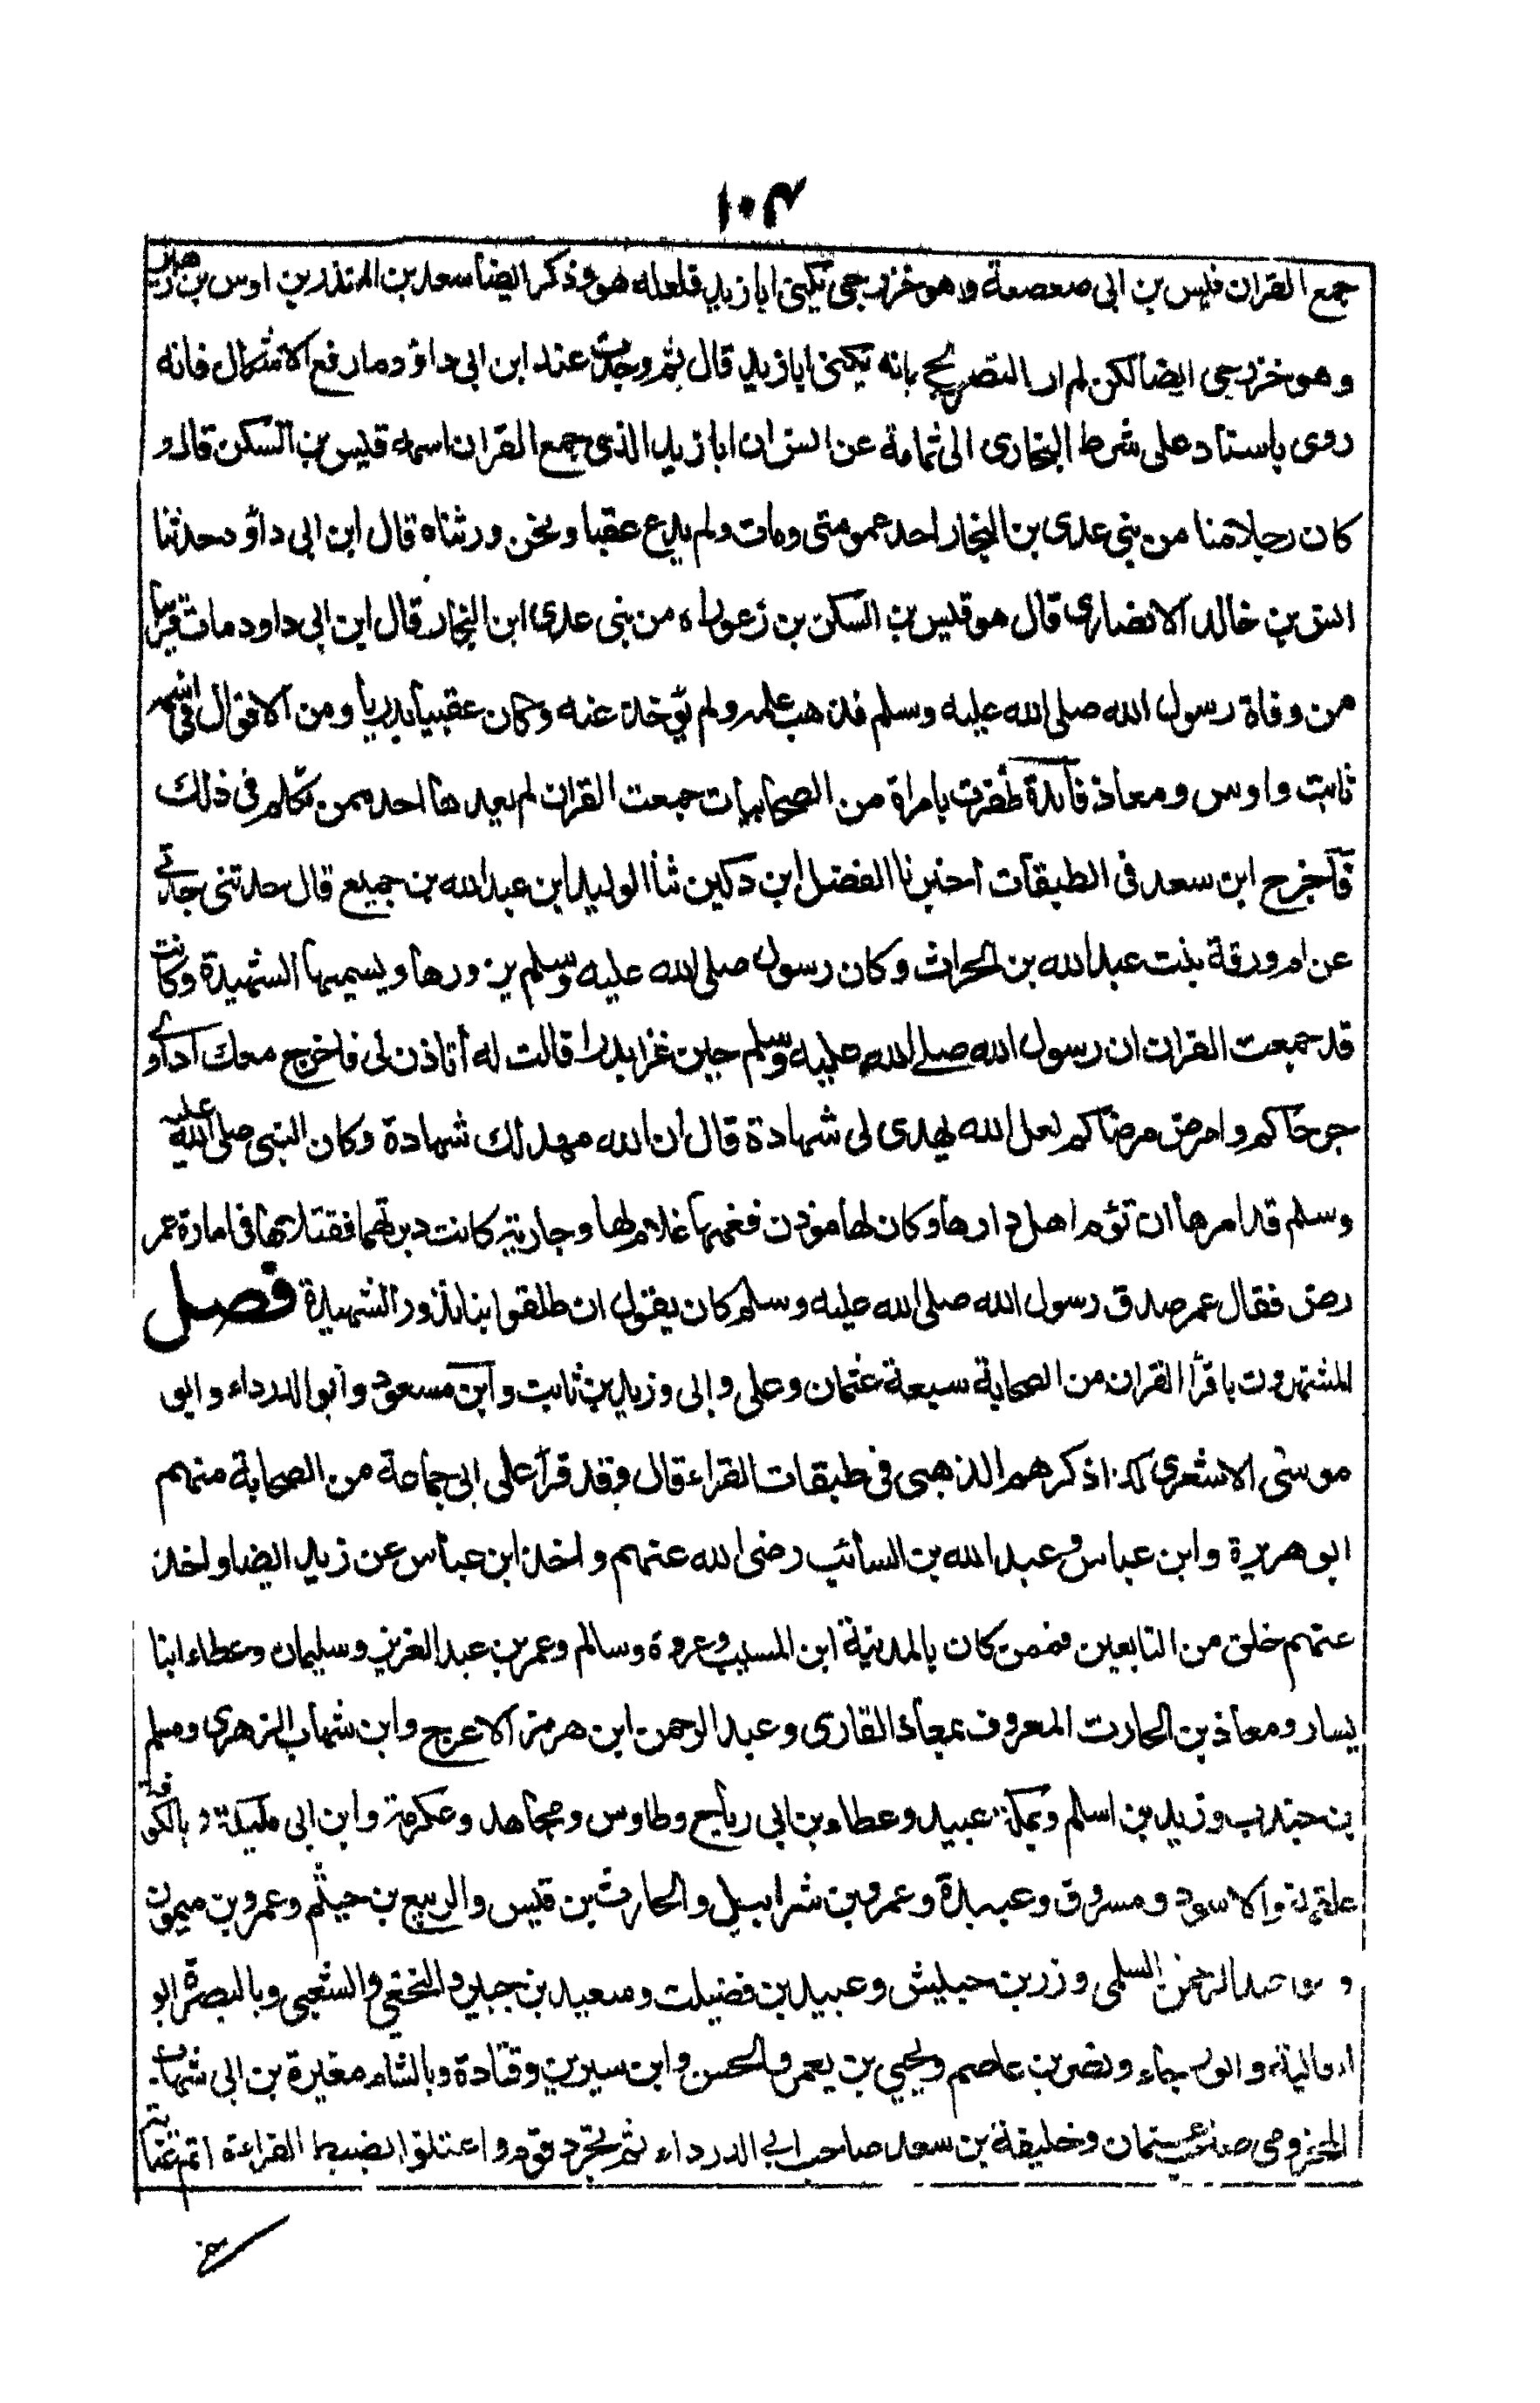 ١٠٤
جمع القران قيس بن ابى صعصعة وهو خزرجى يكنى ابا زيد فلعله هو وذكر ايضا سعد بن المنذر بن اوس بن زهير
وهو خزرجى ايضا لكن لم ار التصريح بانه يكنى ابا زيد قال ثم وجدت عند ابن ابى داؤد ما رفع الاشكال فانه
روى باسناد على شرط البخارى الى ثمامة عن انس ان ابا زيد الذى جمع القران اسمه قيس بن السكن قال و
كان رجلا منا من بنى عدى بن النجار احد عمومتى ومات ولم يدع عقبا ونحن ورثناه قال ابن ابى داؤد حدثنا
انس بن خالد الانصارى قال هو قيس بن السكن بن زعوراء من بنى عدى ابن النجار قال ابن ابى داود مات قريبا
من وفاة رسول الله صلى الله عليه وسلم فذهب علمه ولم يؤخذ عنه وكان عقبيا بدريا ومن الاقوال فى اسمه
ثابت واوس ومعاذ فائدة ظفرت بامراة من الصحابيات جمعت القران لم يعدها احد ممن تكلم فى ذلك
فاخرج ابن سعد فى الطبقات اخبرنا الفضل ابن دكين ثنا الوليد ابن عبد الله بن جميع قال حدثتنى جدتى
عن ام ورقة بنت عبد الله بن الحراث وكان رسول صلى الله عليه وسلم يزورها ويسميها الشهيدة وكانت
قد جمعت القران ان رسول الله صلى الله عليه وسلم حين غزا بدرا قالت له أتاذن لى فاخرج معك اداوى
جرحاكم وامرض مرضاكم لعل الله يهدى لى شهادة قال ان الله مهد لك شهادة وكان النبى صلى الله عليه
وسلم قد امرها ان تؤم اهل دارها وكان لها موذن فغمها غلام لها وجارية كانت دبرتهما فقتلاها فى امارة عمر
رض فقال عمر صدق رسول الله صلى الله عليه وسلم كان يقول ان طلقوا بنا نذور الشهيدة فصل
المشتهرون باقرأ القران من الصحابة سبعة عثمان وعلى وابى وزيد بن ثابت وابن مسعود وابو الدرداء وابو
موسى الاشعري كذا ذكرهم الذهبى فى طبقات القراء قال وقد قرأ على ابى جماعة من الصحابة منهم
ابو هريرة وابن عباس وعبد الله بن السائب رضى الله عنهم واخذ ابن عباس عن زيد ايضا واخذ
عنهم خلق من التابعين فممن كان بالمدينة ابن المسيب وعروة وسالم وعمر بن عبد العزيز وسليمان وعطاء ابنا
يسار ومعاذ بن الحارث المعروف بمعاذ القارى وعبد الرحمن ابن هرمز الاعرج وابن شهاب الزهري ومسلم
بن جندب وزيد بن اسلم وبمكة عبيد وعطاء بن ابى رباح وطاوس ومجاهد وعكرمة وابن ابى مليكة وبالكوفة
علقمة والاسود ومسروق وعبيدة وعمرو بن شرابيل والحارث بن قيس والربيع بن خيثم وعمرو بن ميمون
و عبد الرحمن السلمى وزر بن حبيش وعبيد بن فضيلت وسعيد بن جبير والنخعي والشعبى وبالبصرة ابو
العالية وابو رجاء ونصر بن عاصم ويحيي بن يعمر والحسن وابن سيرين وقتادة وبالشام مغيرة بن ابى شهاب
المخزومى صاحب عثمان وخليفة بن سعد صاحب ابى الدرداء ثم تجرد قوم واعتلوا بضبط القراءة اتم عناية